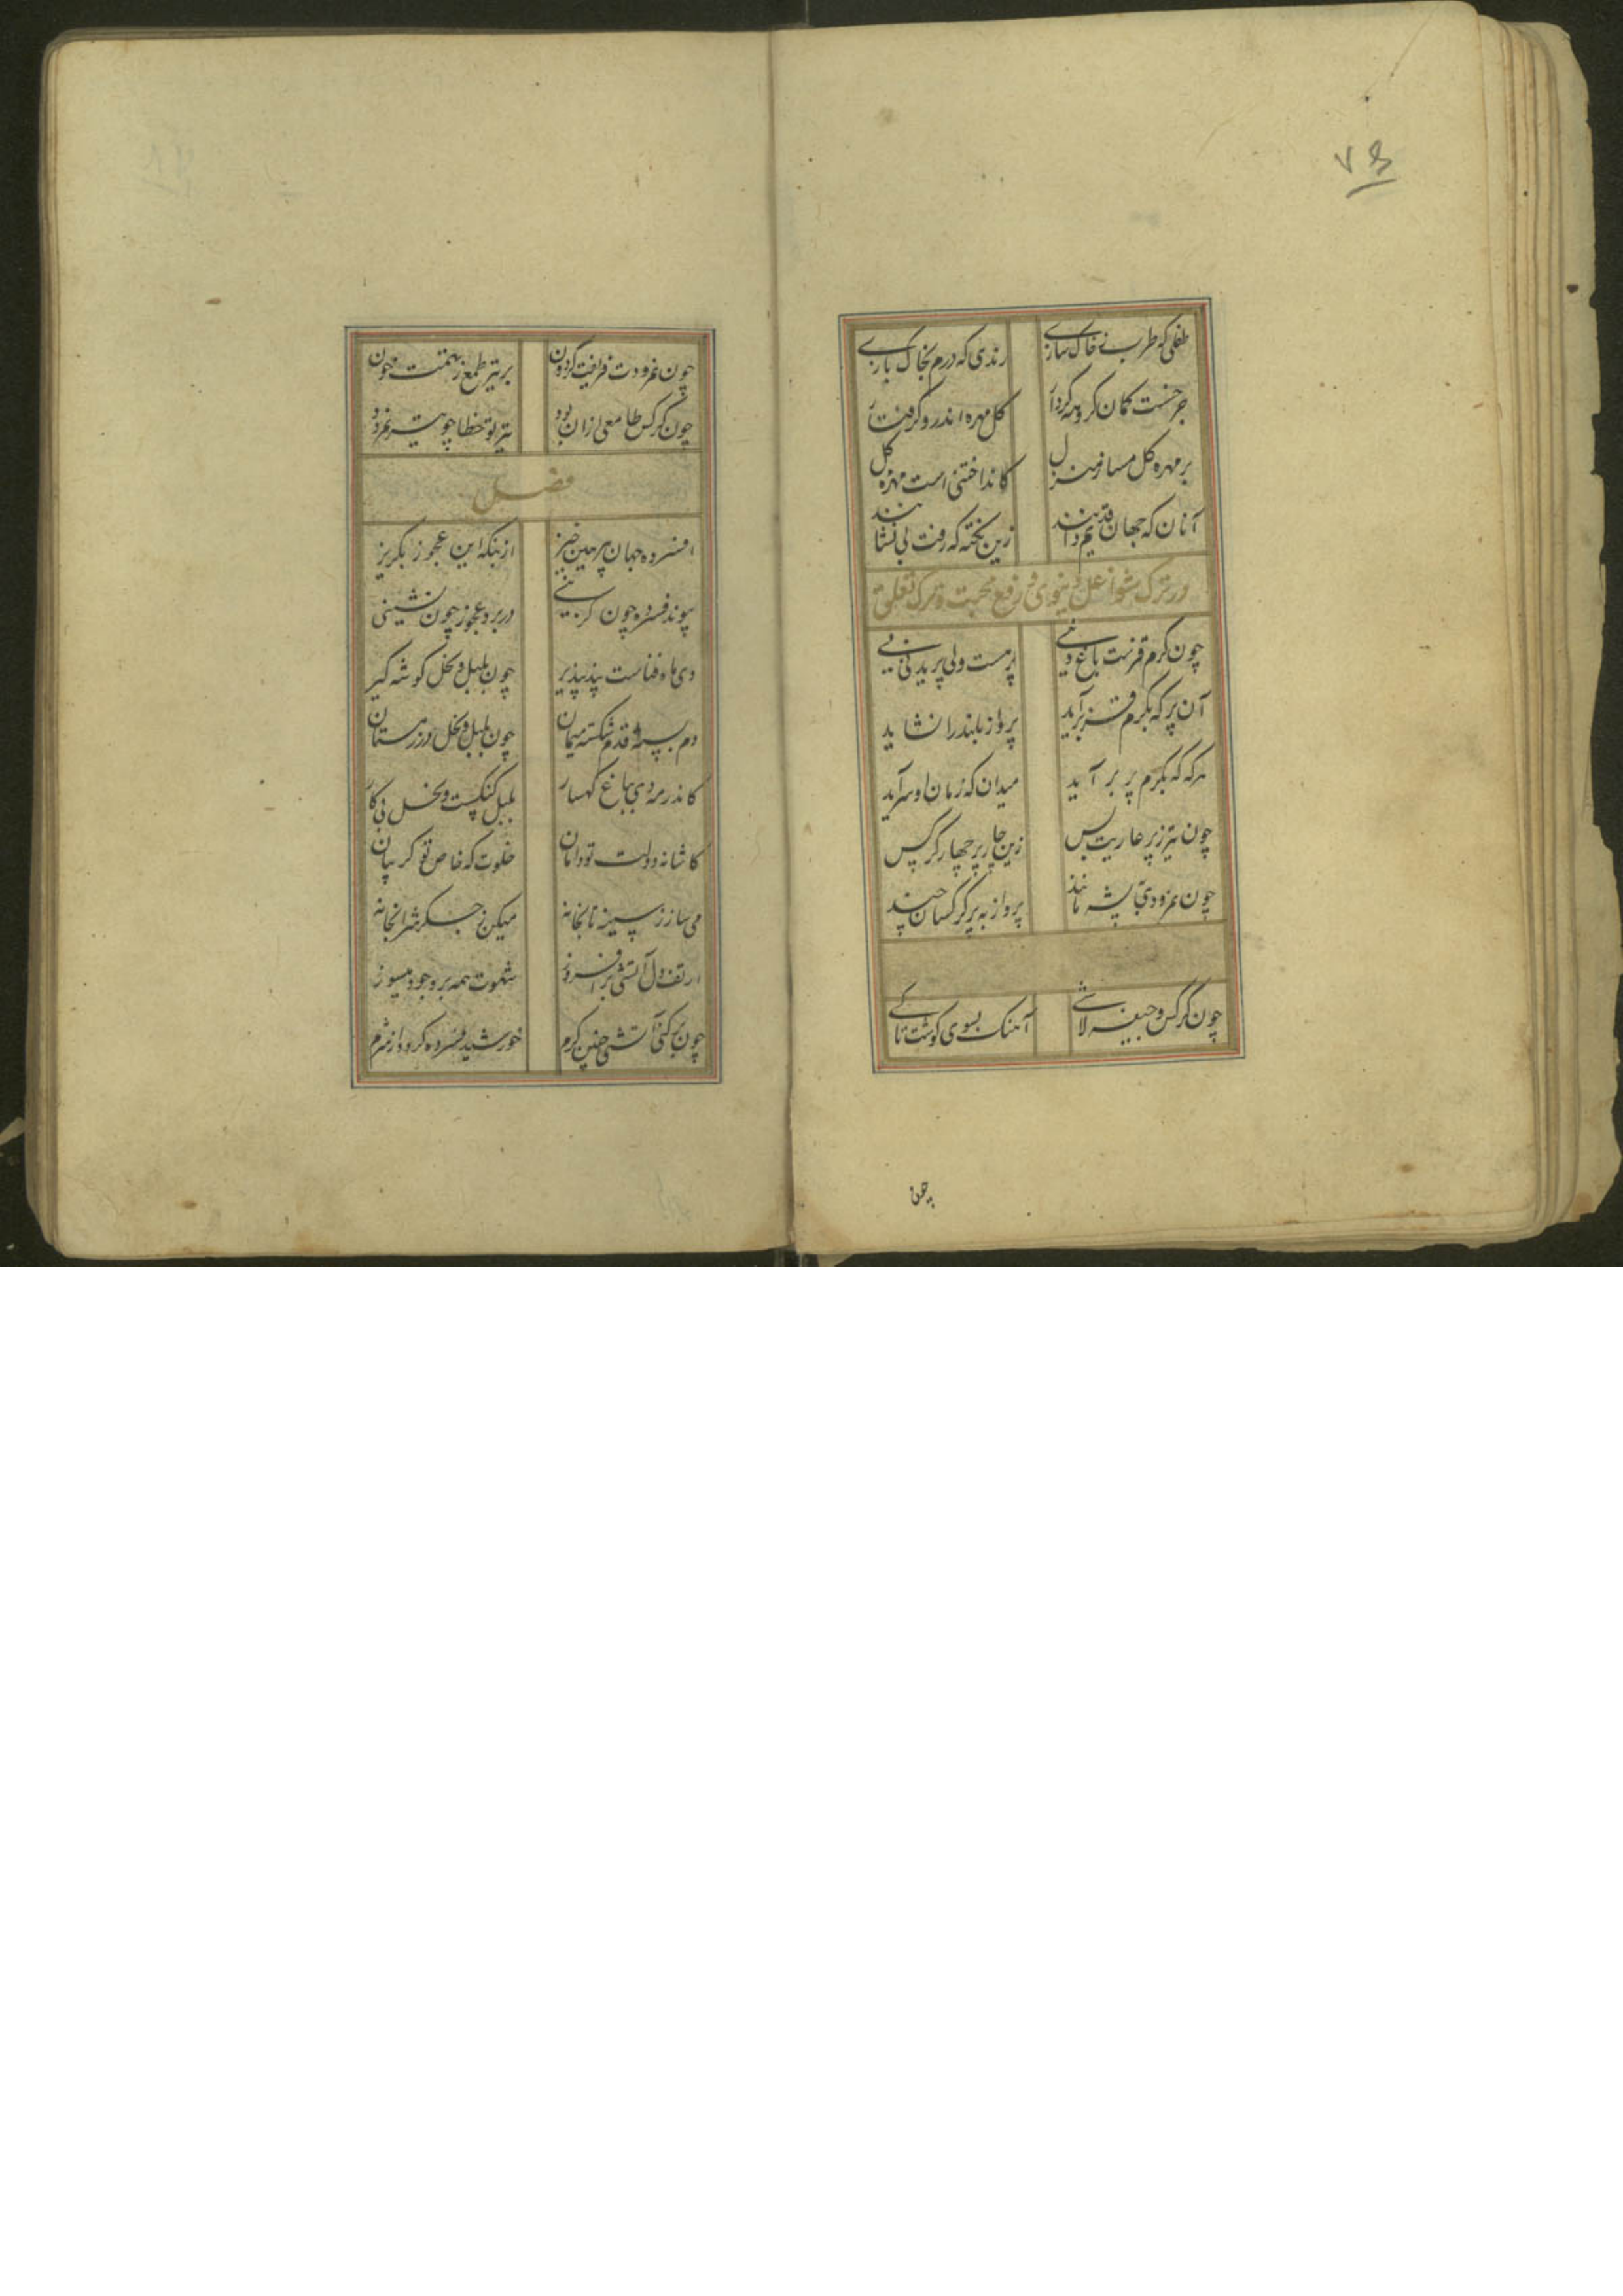 ۷۶
طفلی که طرب ز خاک سازی
رندی که درم بخاک بازی
چرخست کمان کروهه کردار
کل مهره اندرو گرفتار
بر مهره کل مساز منزل
کانداختنی است مهره کل
آنان که جهان قدیم دانند
زین تخته که رفت بی نشانند
در ترک شواغل دنیوی و رفع محبت و ترک تعلق
چون کرم قزست باغ
پر هست ولی پریدنی نی
آن پر که بکرم قز برآید
پرواز بلند را نشاید
هرکه که بکرم پر بر آید
میدان که زمان او سرآید
چون تیر ز پر عاریت بس
زین چار پر چهار کرکس
چون نمرودی پشه مانند
پرواز به پر کرکسان چند
چون کرکس و جیفه لاشی
آهنک بسوی کوشت تا کی
چون
چون نمرودت فریفت کردون
بر تیر طمع ز همتت خون
چون کرکس طامعی ازان بود
تیر تو خطا چو تیر نمرود
فصل
افسرده جهان پیر مین خیز
از بنکه این عجوز بکریز
پیوند فسرده چون کزینی
در برد عجوز چون نشینی
دی ماه فناست پند بپذیر
چون بلبل و نخل کوشه کیر
دم بسته قدم شکسته میمان
چون بلبل و نخل در زمستان
کاندر مه دی بباغ کهسار
بلبل کنکست و نخل بی کار
کاشانه دولت تو دامان
خلوت که خاص تو کریبان
می ساز ز سینه تابخانه
میکن ز جکر شرابخانه
از تف دل آتشی بر افروز
شهوت همه بر وجود میسوز
چون برکنی آتشی چنین کرم
خورشید فسرده کردد از شرم